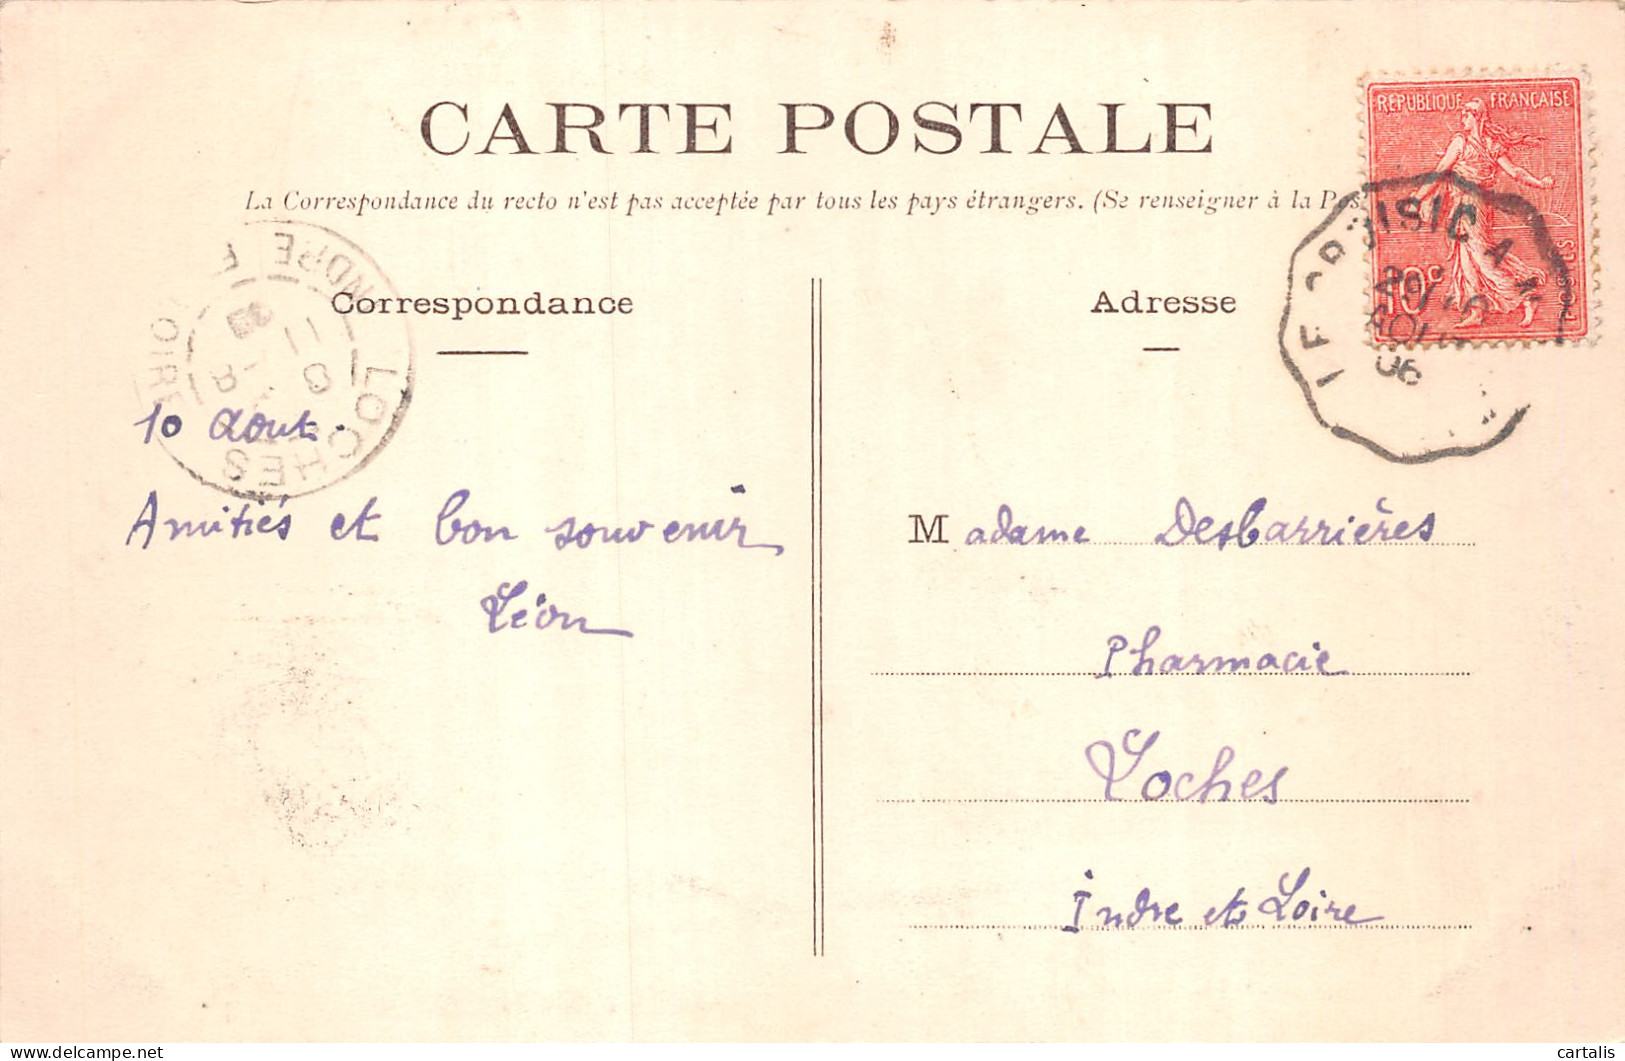 CARTE POSTALE
La Correspondance du recto n'est pas acceptée par tous les pays étrangers. (Se renseigner à la Pos
REPUBLIQUE FRANÇAISE
10c
POSTES
LE CROISIC A N
AOUT
06
INDRE ET LOIRE
LOCHES
11
8
Correspondance
Adresse
10 Aout.
Amitiés et bon souvenir
Léon
Madame Desbarrières
Pharmacie
Loches
Indre et Loire
delcampe.net
cartalis